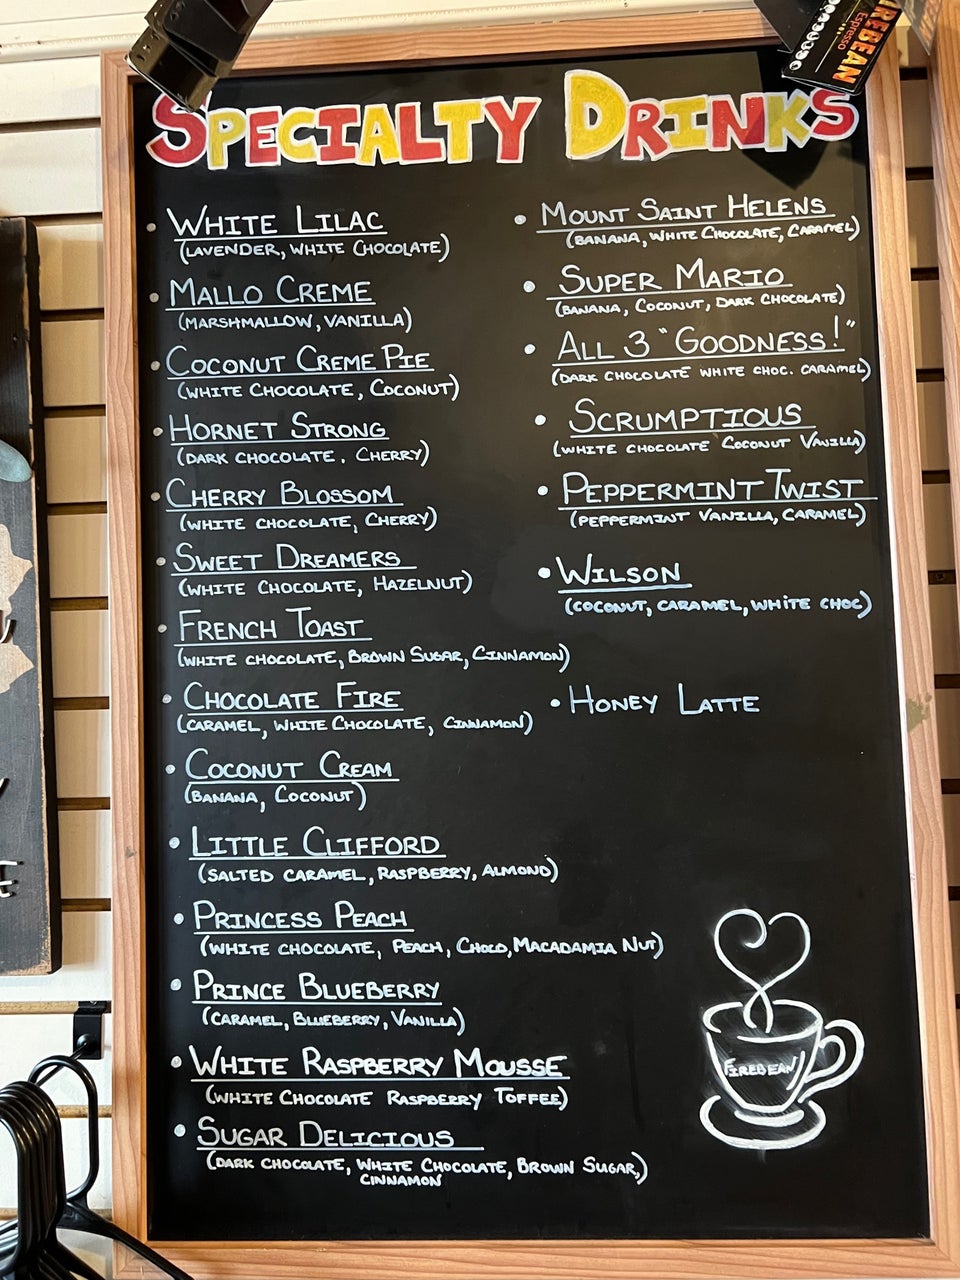 FIREBEAN
Espresso
SPECIALTY DRINKS
• WHITE LILAC
(LAVENDER, WHITE CHOCOLATE)
• MALLO CREME
(MARSHMALLOW, VANILLA)
• COCONUT CREME PIE
(WHITE CHOCOLATE, COCONUT)
• HORNET STRONG
(DARK CHOCOLATE, CHERRY)
• CHERRY BLOSSOM
(WHITE CHOCOLATE, CHERRY)
• SWEET DREAMERS
(WHITE CHOCOLATE, HAZELNUT)
• FRENCH TOAST
(WHITE CHOCOLATE, BROWN SUGAR, CINNAMON)
• CHOCOLATE FIRE
(CARAMEL, WHITE CHOCOLATE, CINNAMON)
• COCONUT CREAM
(BANANA, COCONUT)
• LITTLE CLIFFORD
(SALTED CARAMEL, RASPBERRY, ALMOND)
• PRINCESS PEACH
(WHITE CHOCOLATE, PEACH, CHOCO, MACADAMIA NUT)
• PRINCE BLUEBERRY
(CARAMEL, BLUEBERRY, VANILLA)
• WHITE RASPBERRY MOUSSE
(WHITE CHOCOLATE RASPBERRY TOFFEE)
• SUGAR DELICIOUS
(DARK CHOCOLATE, WHITE CHOCOLATE, BROWN SUGAR,)
CINNAMON
• MOUNT SAINT HELENS
(BANANA, WHITE CHOCOLATE, CARAMEL)
• SUPER MARIO
(BANANA, COCONUT, DARK CHOCOLATE)
• ALL 3 "GOODNESS!"
(DARK CHOCOLATE WHITE CHOC. CARAMEL)
• SCRUMPTIOUS
(WHITE CHOCOLATE COCONUT VANILLA)
• PEPPERMINT TWIST
(PEPPERMINT VANILLA, CARAMEL)
• WILSON
(COCONUT, CARAMEL, WHITE CHOC)
• HONEY LATTE
FIREBEAN